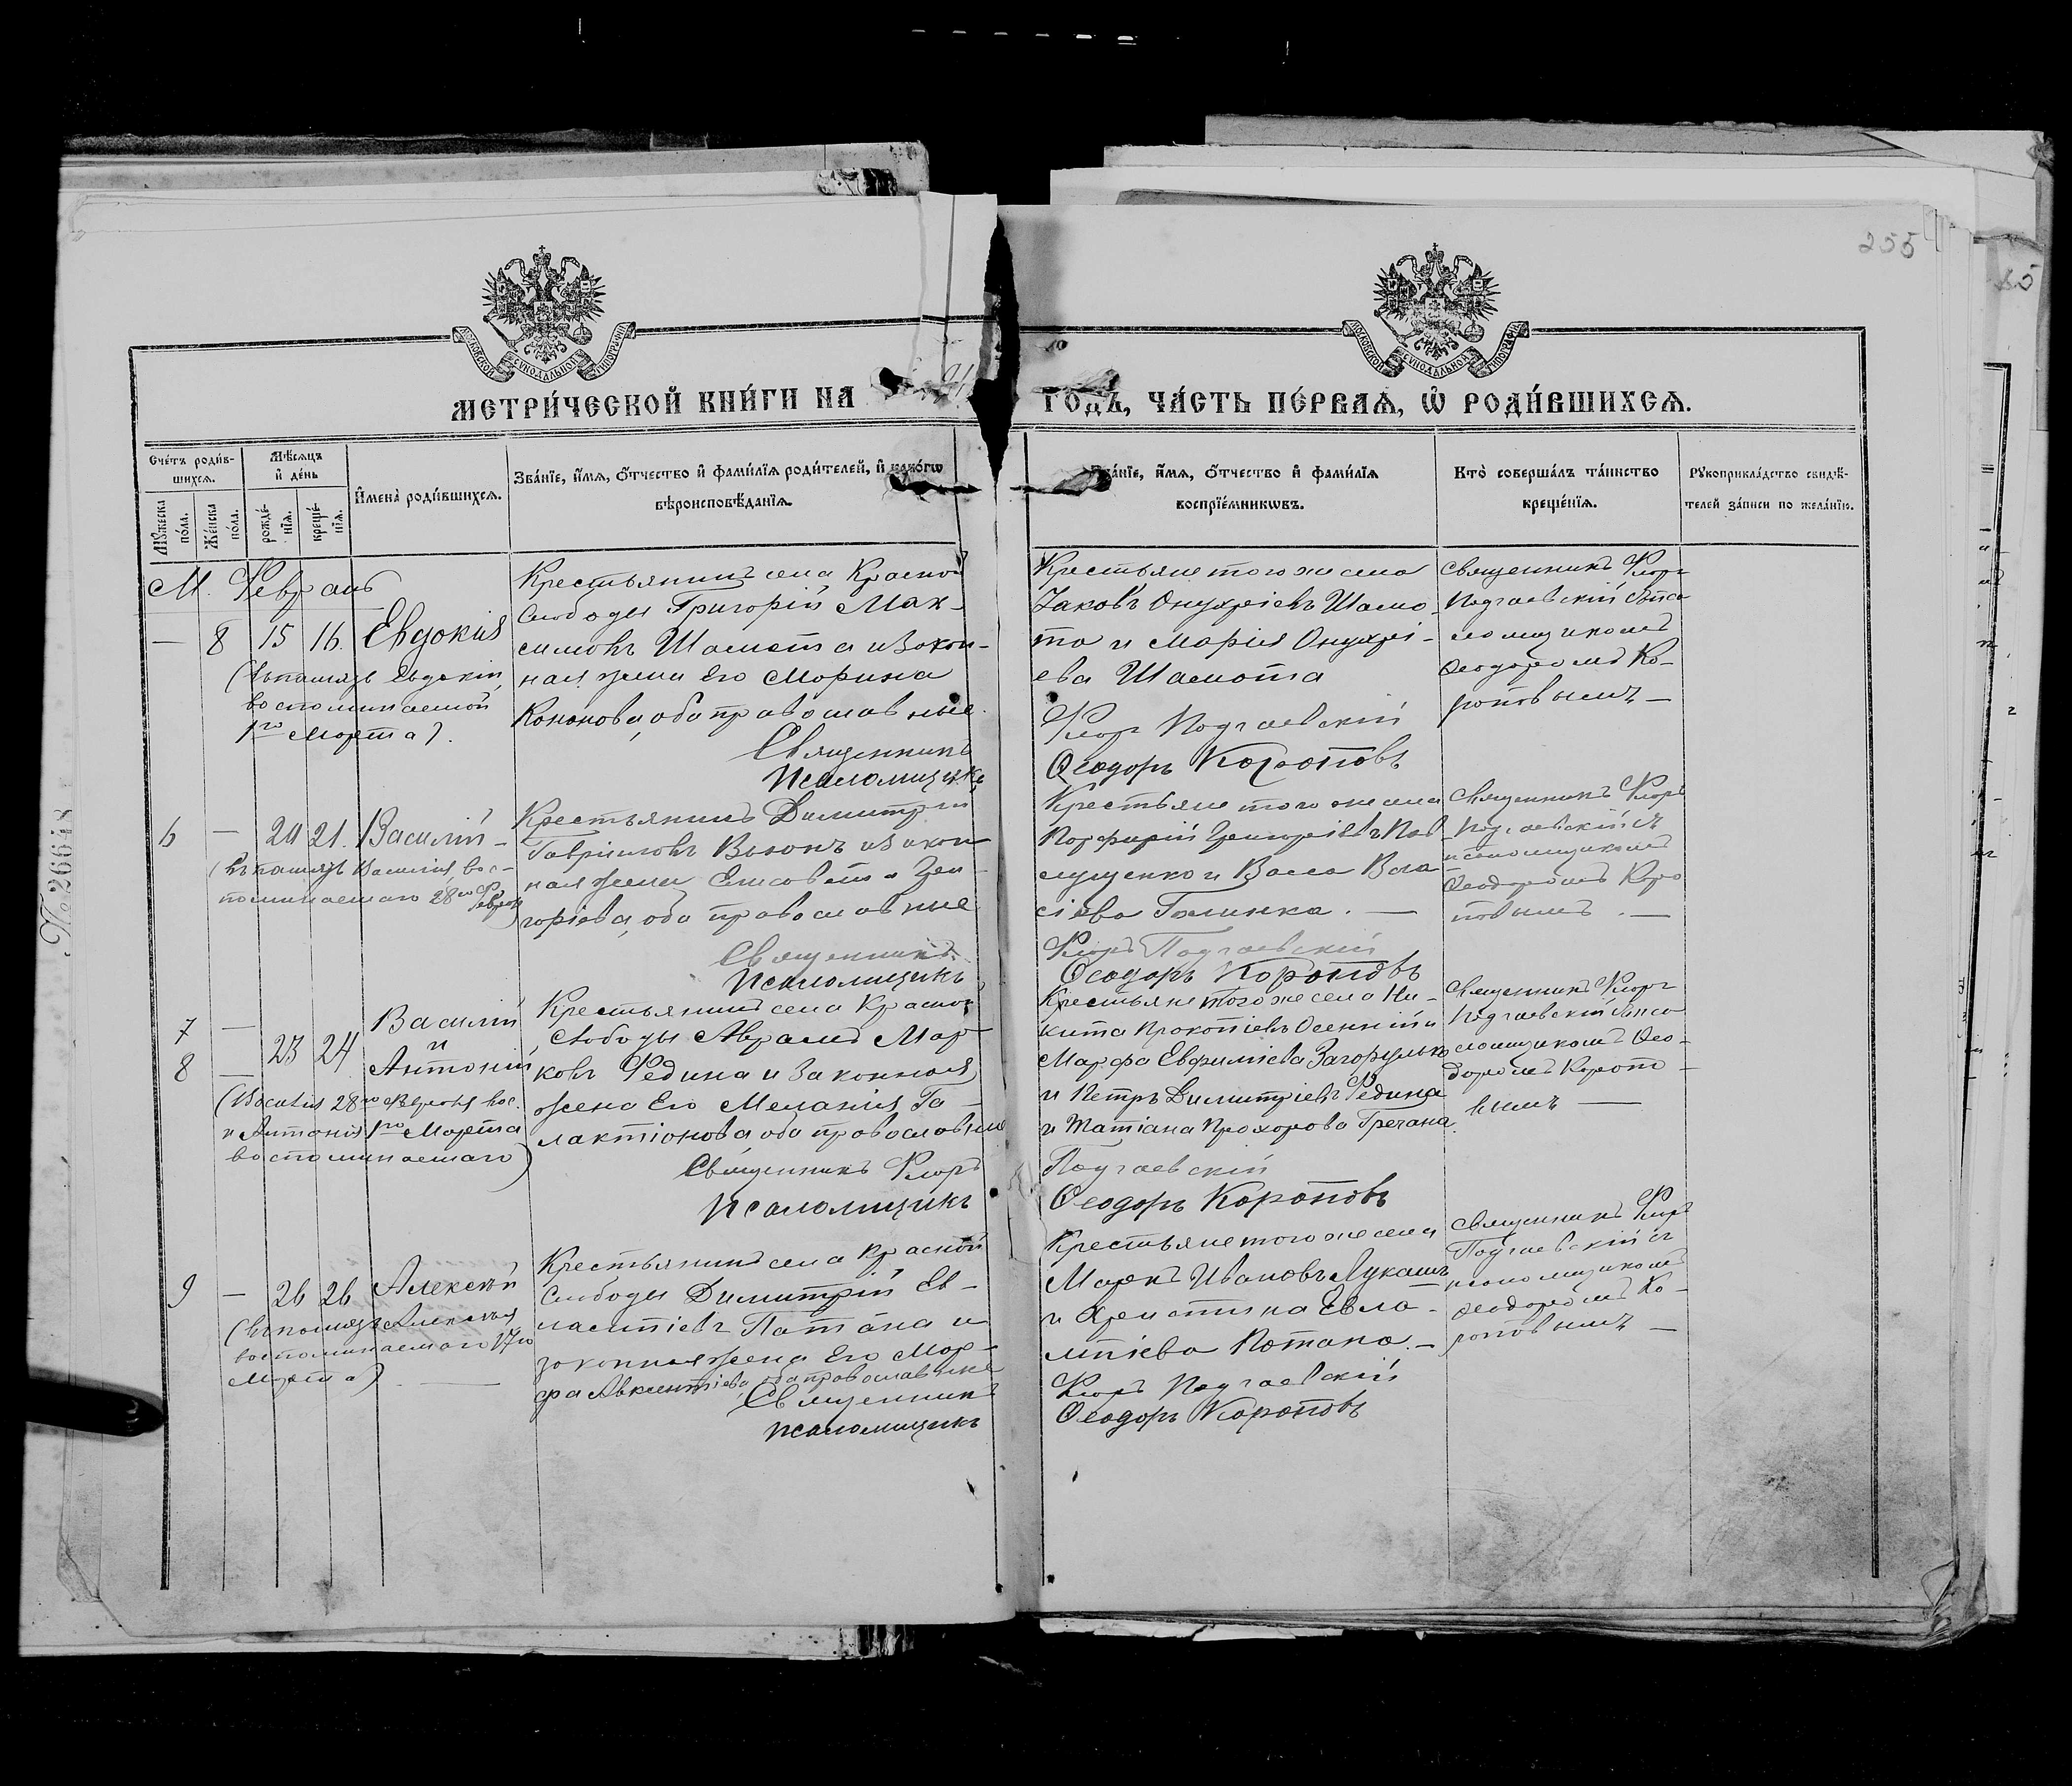 255
МОСКОВСКОЙ СѴНОДАЛЬНОЙ ТИПОГРАФІИ
МОСКОВСКОЙ СѴНОДАЛЬНОЙ ТИПОГРАФІИ
МЕТРИ́ЧЕСКОЙ КНИ́ГИ НА
ГОДЪ, ЧА́СТЬ ПЕ́РВАѦ, Ѽ РОДИ́ВШИХСѦ.
Сче́тъ роди́в-
шихсѧ.
Мꙋ́жеска
по́ла.
Же́нска
по́ла.
Мѣ́сѧцъ
и҆ де́нь
рожде́-
нїѧ.
креще́-
нїѧ.
И҆мена̀ роди́вшихсѧ.
Зва́нїе, и҆́мѧ, ѻ҆́тчество и҆ фами́лїѧ роди́телей, и҆ како́гѡ
вѣроисповѣ́данїѧ.
Зва́нїе, и҆́мѧ, ѻ҆́тчество и҆ фами́лїѧ
воспрїе́мникѡвъ.
Кто̀ соверша́лъ та́инство
креще́нїѧ.
Рꙋкоприкла́дство свидѣ́-
телей за́писи по жела́нїю.
М. Февраль
— 8 15 16. Евдокія
(въ память Евдокіи
воспоминаемой
1го Марта).
Крестьянинъ села Красной
Слободы Григорій Мак-
симовъ Шамота и закон-
ная жена его Марина
Кононова, оба православные.
Священникъ
Псаломщикъ
Крестьяне того же села
Іаковъ Онуфріевъ Шамо-
та и Марія Онуфрі-
ева Шамота
Флоръ Подгаевскій
Ѳеодоръ Коротовъ
Священникъ Флоръ
Подгаевскій съ пса
ломщикомъ
Ѳеодоромъ Ко-
ротовымъ —
6 — 20 21. Василій —
(въ память Василія, вос-
поминаемаго 28го Февраля
Крестьянинъ Димитрій
Гавріиловъ Вьюнъ и закон-
ная жена Елисавета Гри-
горіева, оба православные
Священникъ
Псаломщикъ
Крестьяне того же села
Порфирій Григоріевъ Пав
лущенко и Васса Вла
сіева Галинка. —
Флоръ Подгаевскій
Ѳеодоръ Коротовъ
Священникъ Флоръ
Подгаевскій съ
псаломщикомъ
Ѳеодоромъ Коро
товымъ. —
7 —
8 — 23 24 Василій
и
Антоній
(Василія 28го Февраля вос.
и Антонія 1го Марта
воспоминаемаго)
Крестьянинъ села Красной
Слободы Аврамъ Мар-
ковъ Федина и законная
жена его Меланія Га-
лактіонова, оба православные
Священникъ Флоръ
Псаломщикъ
Крестьяне того же села Ни-
кита Прокопіевъ Осенній и
Марфа Евфиміева Загорулько
и Петръ Димитріевъ Федина
и Татіана Прохорова Гречана.
Подгаевскій
Ѳеодоръ Коротовъ
Священникъ Флоръ
Подгаевскій съ пса
ломщикомъ Ѳео-
доромъ Корото-
вымъ —
9 — 26 26 Алексѣй
(въ память Алексѣя
воспоминаемаго 17го
Марта) —
Крестьянинъ села Красной
Слободы Димитрій Ев-
лампіевъ Патана и
законная жена его Мар-
фа Авксентіева, оба православные
Священникъ
Псаломщикъ
Крестьяне того же села
Маркъ Ивановъ Лукашъ
и Христина Евла-
мпіева Потана. —
Флоръ Подгаевскій
Ѳеодоръ Коротовъ
Священникъ Флоръ
Подгаевскій съ
псаломщикомъ
Ѳеодоромъ Ко-
ротовымъ —
№ 26648